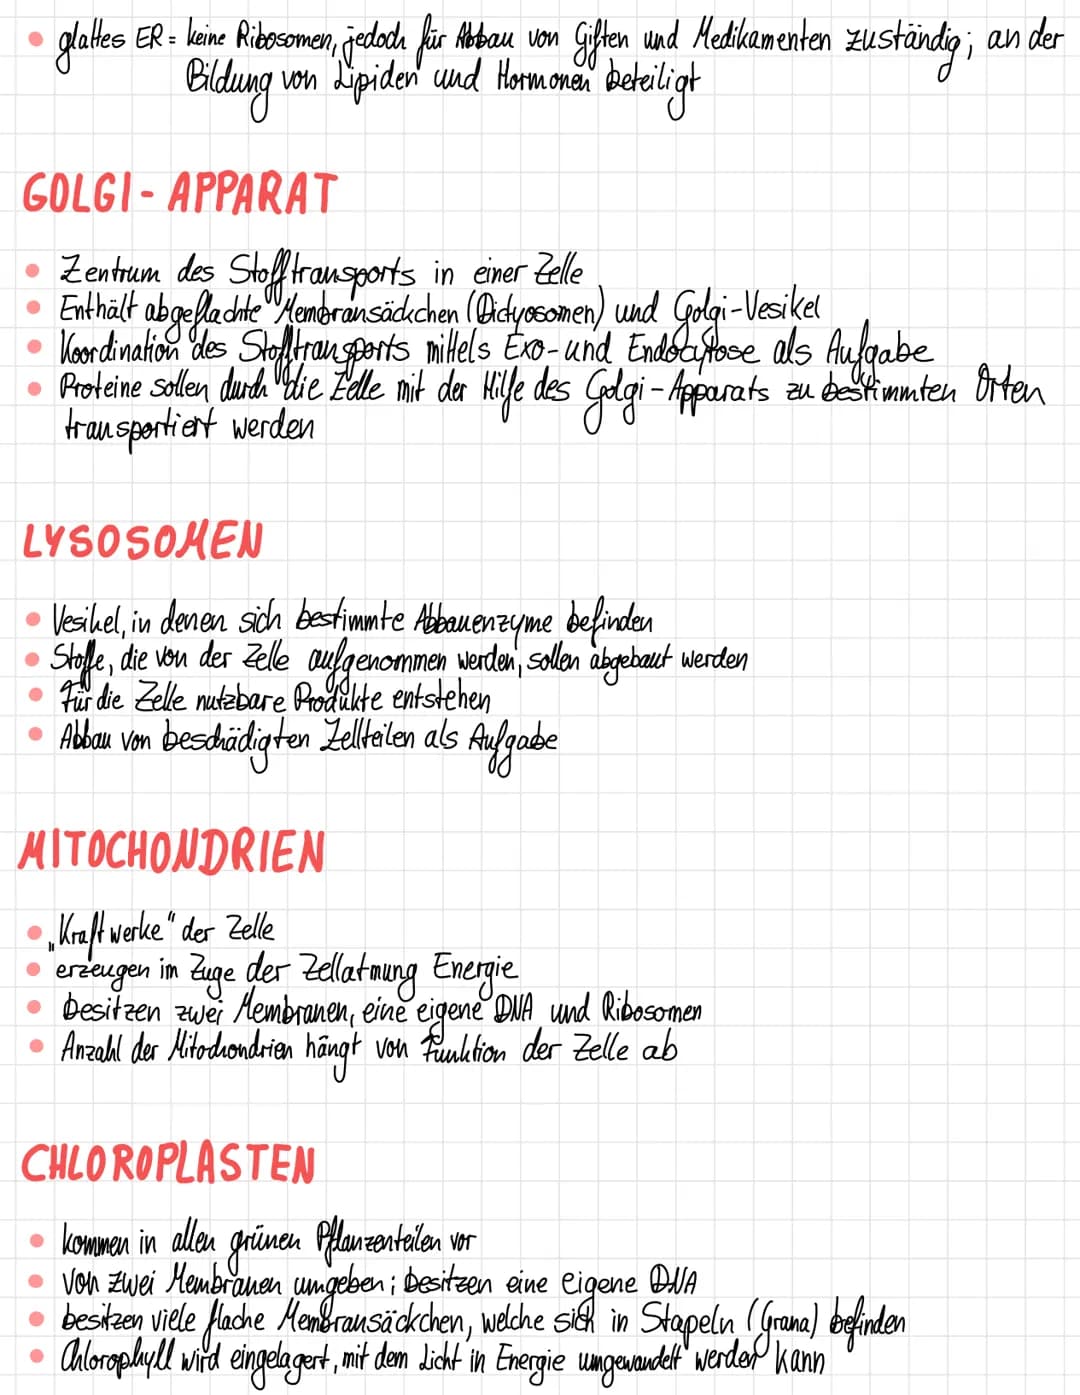 • glattes ER = keine Ribosomen, jedoch für Abbau von Giften und Medikamenten zuständig; an der
Bildung von Lipiden und Hormonen beteiligt
GOLGI-APPARAT
• Zentrum des Stofftransports in einer Zelle
• Enthält abgeflachte Membransäckchen (Dictyosomen) und Golgi-Vesikel
• Koordination des Stofftransports mittels Exo- und Endocytose als Aufgabe
• Proteine sollen durch die Zelle mit der Hilfe des Golgi-Apparats zu bestimmten Orten
transportiert werden
LYSOSOMEN
• Vesikel, in denen sich bestimmte Abbauenzyme befinden
• Stoffe, die von der Zelle aufgenommen werden, sollen abgebaut werden
• Für die Zelle nutzbare Produkte entstehen
• Abbau von beschädigten Zellteilen als Aufgabe
MITOCHONDRIEN
• „Kraftwerke" der Zelle
• erzeugen im Zuge der Zellatmung Energie
• besitzen zwei Membranen, eine eigene DNA und Ribosomen
• Anzahl der Mitochondrien hängt von Funktion der Zelle ab
CHLOROPLASTEN
• kommen in allen grünen Pflanzenteilen vor
• von zwei Membranen umgeben; besitzen eine eigene DNA
• besitzen viele flache Membransäckchen, welche sich in Stapeln (Grana) befinden
• Chlorophyll wird eingelagert, mit dem Licht in Energie umgewandelt werden kann